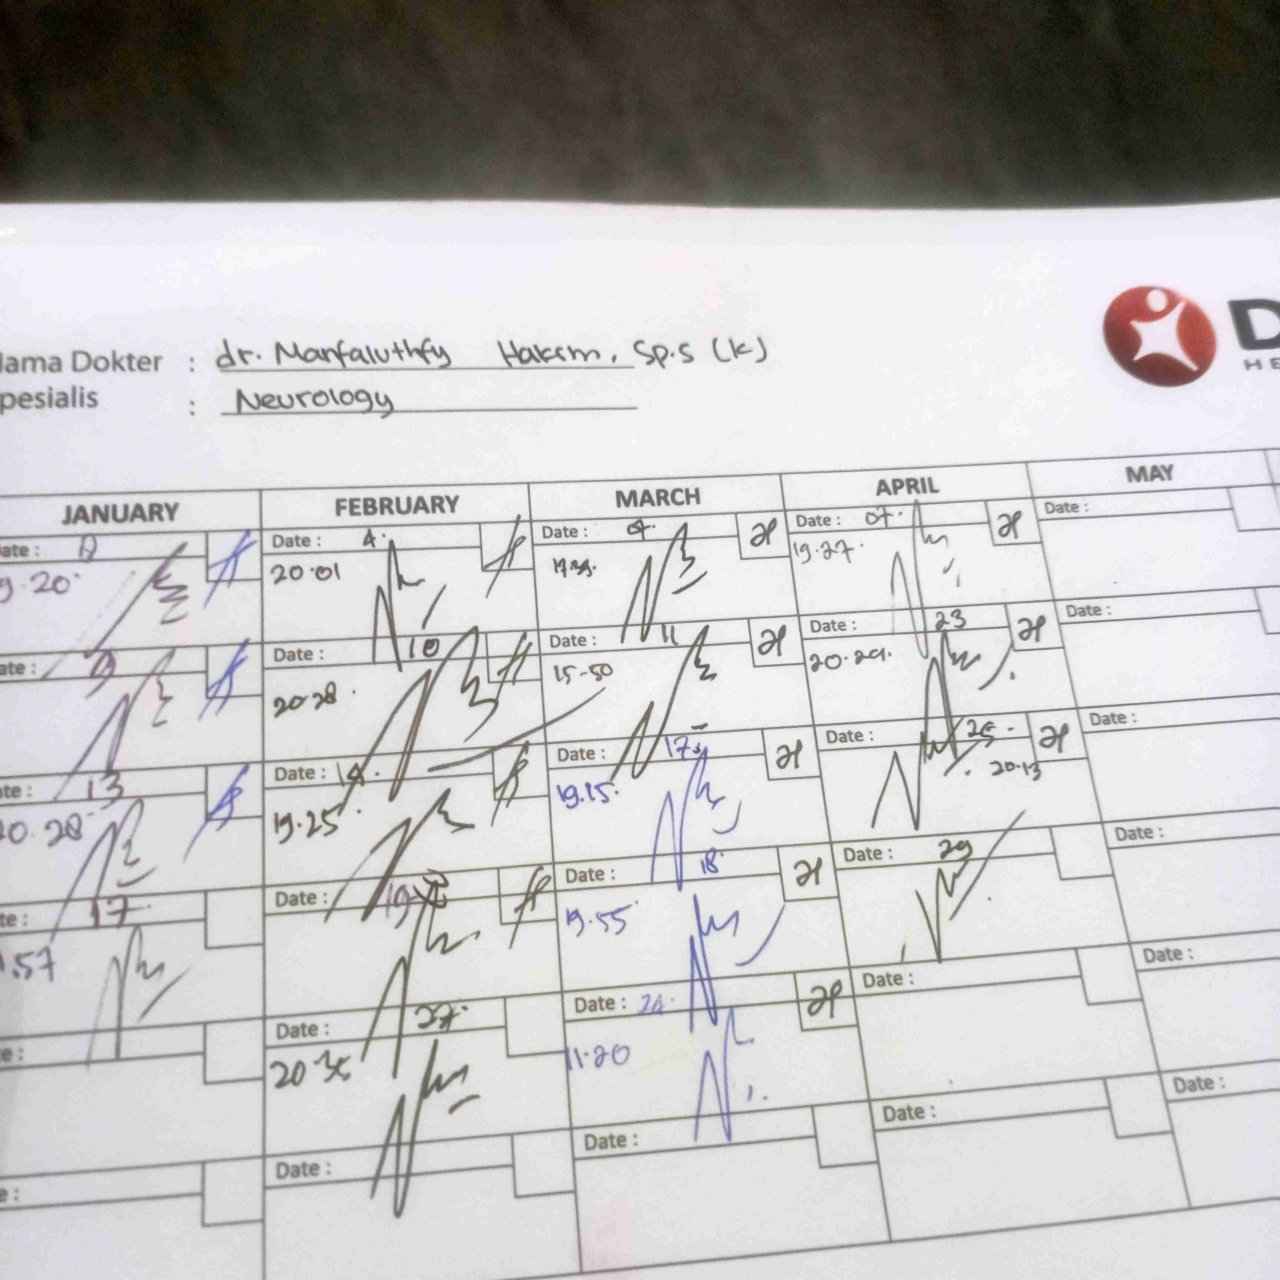 lama Dokter : dr. Manfaluthfy Hakim, Sp.S (K)
pesialis : Neurology
D
HE
JANUARY FEBRUARY MARCH APRIL MAY
ate : Date : 4. Date : 07. Date : 07. Date :
9.20 20.01 19.27.
ate : Date : 10 Date : 11 Date : 23 Date :
20.28. 15-50 20.29.
ate : 13 Date : 14. Date : 17 Date : 25 - Date :
20.28 19.25 19.15. 20.13
te : 17 Date : 19 Date : 18 Date : 29 Date :
.57 19.55
e : Date : 27. Date : 24. Date : Date :
20 35 11.20
e : Date : Date : Date : Date :